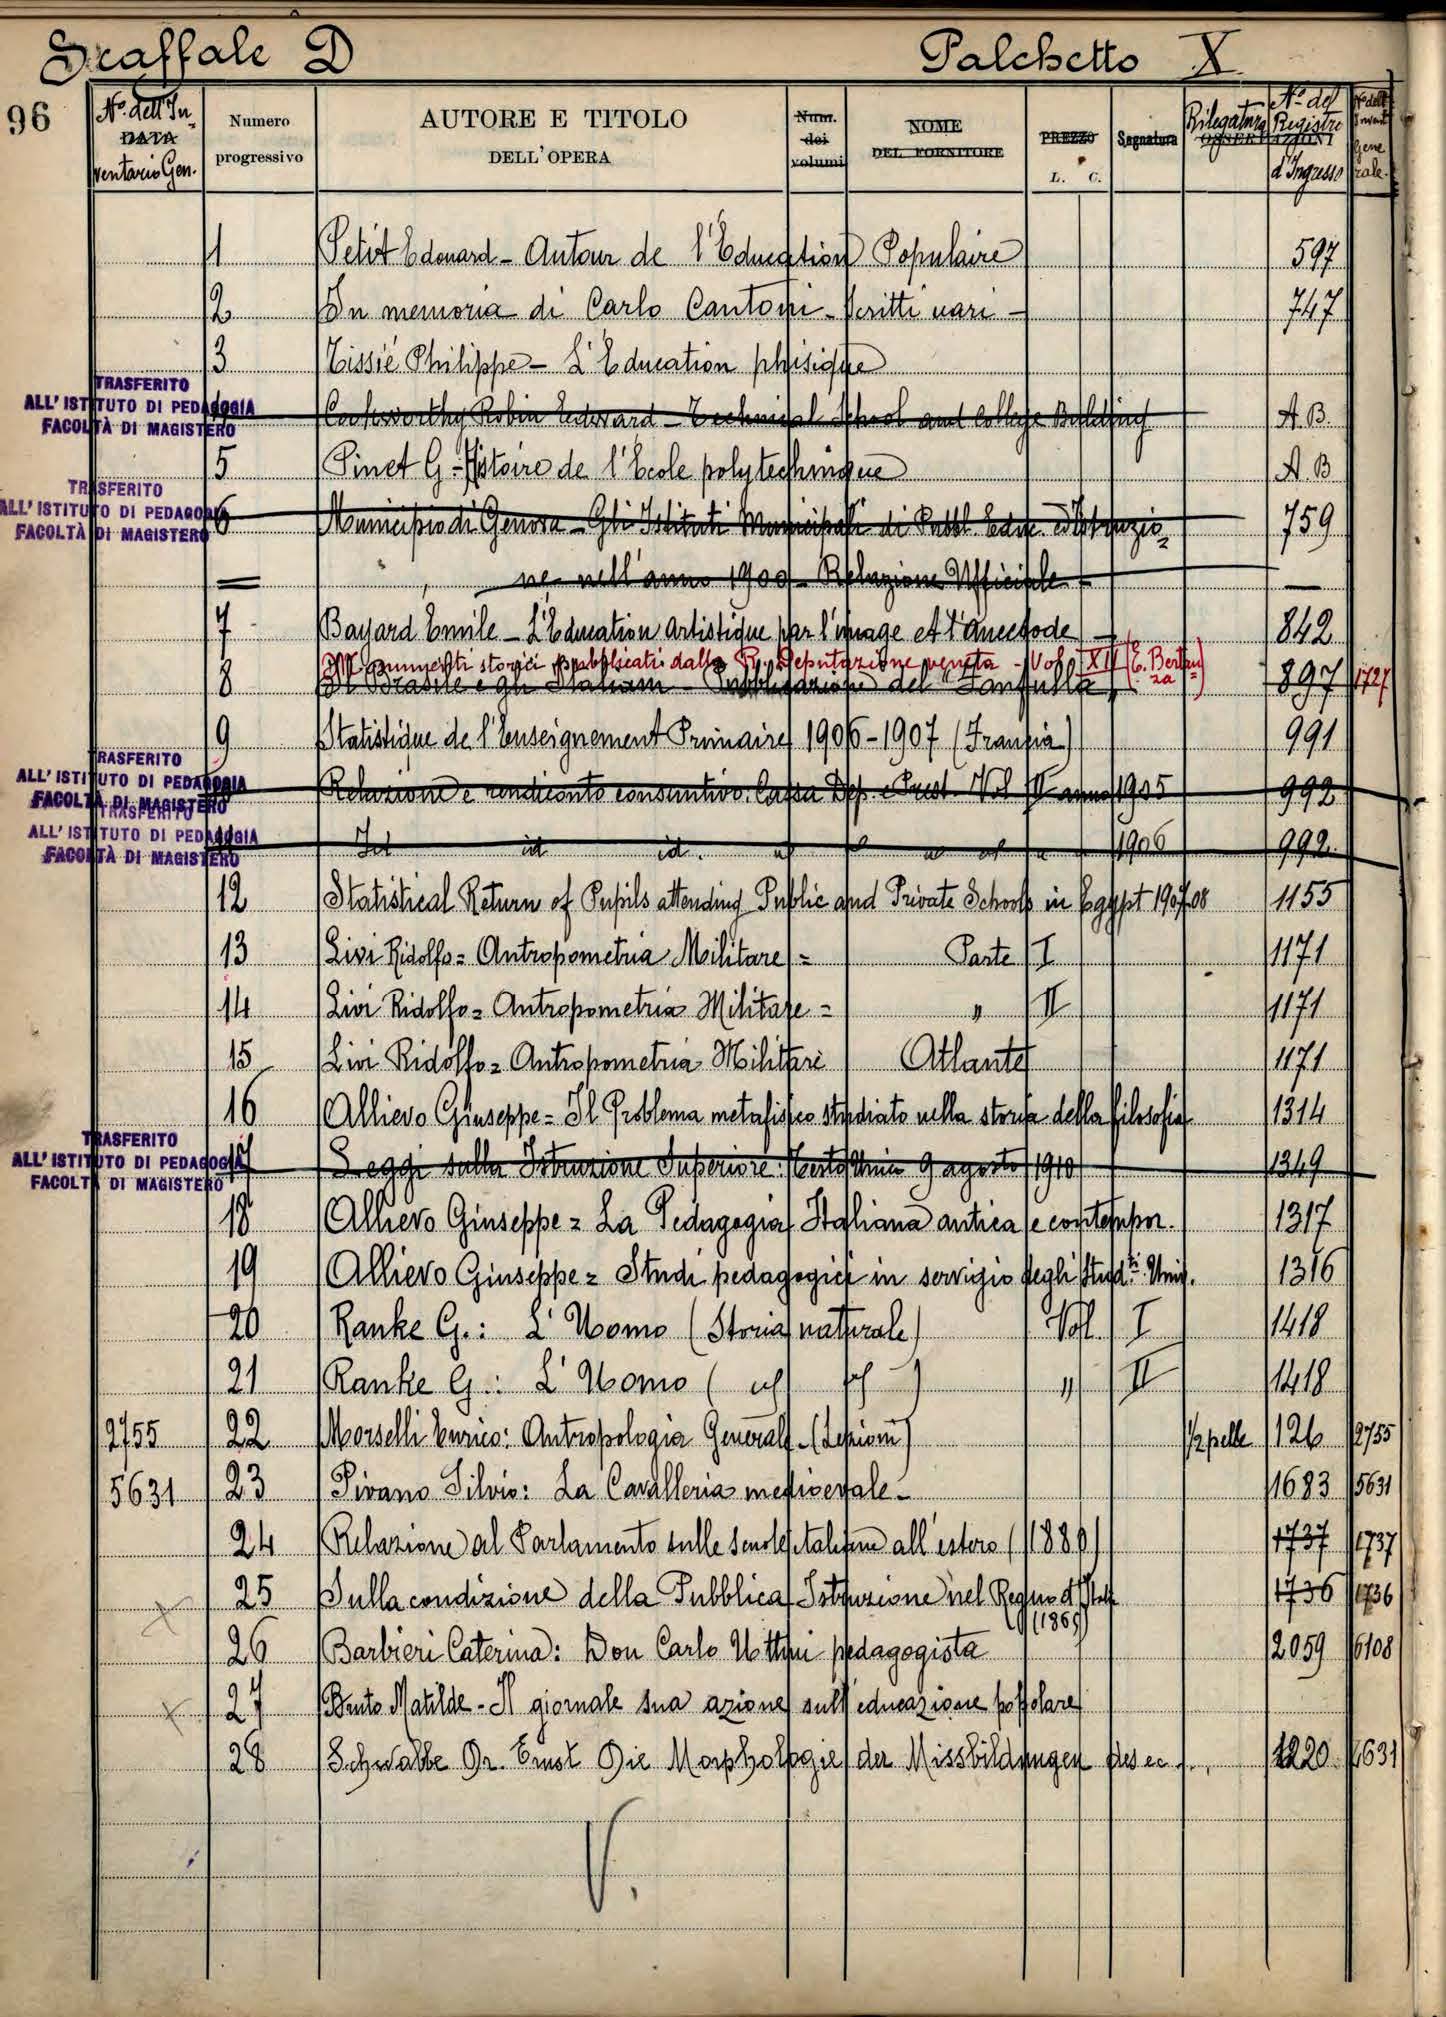 Scaffale D Palchetto X
96
N.° dell'In=
DATA
ventario Gen.
Numero
progressivo
AUTORE E TITOLO
DELL'OPERA
Num.
dei
volumi
NOME
DEL FORNITORE
PREZZO
L. C.
Segnatura
Rilegatura
OSSERVAZIONI
N.° del
Registro
d'Ingresso
N.° dell'
Invent.
Gene
rale.
1 Petit Edouard - Autour de l'Éducation Populaire 597
2 In memoria di Carlo Cantoni - Scritti vari - 747
3 Tissié Philippe - L'Éducation phisique
TRASFERITO
ALL'ISTITUTO DI PEDAGOGIA
FACOLTÀ DI MAGISTERO
Cookworthy Robin Edward - Technical School and College Building A.B.
5 Pinet G - Histoire de l'École polytechnique A.B
TRASFERITO
ALL'ISTITUTO DI PEDAGOGIA
FACOLTÀ DI MAGISTERO
6 Municipio di Genova - Gli Istituti Municipali di Pubbl. Educ. ed Istruzio= 759
= ne nell'anno 1900 - Relazione Ufficiale - —
7 Bayard Emile - L'Éducation artistique par l'image et l'anecdode - 842
Monumenti storici pubblicati dalla R. Deputazione veneta - Vol. XII (E. Bertan=
za)
8 Il Brasile e gli Italiani - Pubblicazione del "Fanfulla" 897 1727
9 Statistique de l'Enseignement Primaire 1906-1907 (Francia) 991
TRASFERITO
ALL'ISTITUTO DI PEDAGOGIA
FACOLTÀ DI MAGISTERO
Relazione e rendiconto consuntivo. Cassa Dep. e Prest. Vol II anno 1905 992
TRASFERITO
ALL'ISTITUTO DI PEDAGOGIA
FACOLTÀ DI MAGISTERO
11 Id id id. 1906 992.
12 Statistical Return of Pupils attending Public and Private Schools in Egypt 1907-08 1155
13 Livi Ridolfo = Antropometria Militare = Parte I 1171
14 Livi Ridolfo = Antropometria Militare = " II 1171
15 Livi Ridolfo = Antropometria Militare Atlante 1171
16 Allievo Giuseppe = Il Problema metafisico studiato nella storia della filosofia 1314
TRASFERITO
ALL'ISTITUTO DI PEDAGOGIA
FACOLTÀ DI MAGISTERO
17 Leggi sulla Istruzione Superiore: Testo Unico 9 agosto 1910 1349
18 Allievo Giuseppe = La Pedagogia Italiana antica e contempor. 1317
19 Allievo Giuseppe = Studi pedagogici in servigio degli Stud.ti Univ. 1316
20 Ranke G.: L'Uomo (Storia naturale) Vol. I 1418
21 Ranke G.: L'Uomo ( " " ) " II 1418
2755 22 Morselli Enrico: Antropologia Generale - (Lezioni) 1/2 pelle 126 2755
5631 23 Pivano Silvio: La Cavalleria medioevale - 1683 5631
24 Relazione al Parlamento sulle scuole italiane all'estero (1880) 1737 1737
25 Sulla condizione della Pubblica Istruzione nel Regno d'Italia 1736 1736
(1865)
26 Barbieri Caterina: Don Carlo Uttini pedagogista 2059 6108
27 Bruto Matilde - Il giornale sua azione sull'educazione popolare
28 Schwalbe Dr. Ernst Die Morphologie der Missbildungen des ec... 1220 4631
V.